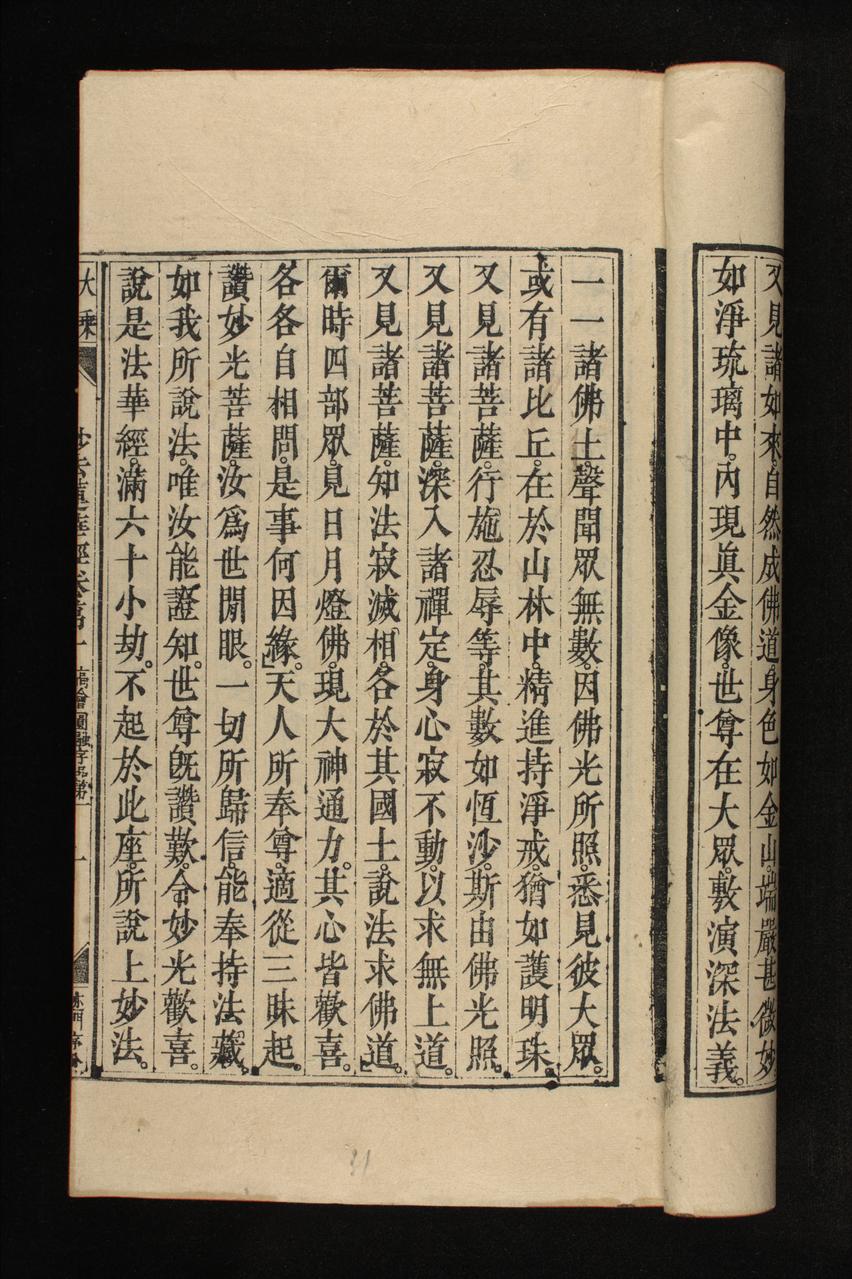 又見諸如來。自然成佛道。身色如金山。端嚴甚微妙
如淨琉璃中。內現眞金像。世尊在大眾。敷演深法義。
一一諸佛土。聲聞眾無數。因佛光所照。悉見彼大眾。
或有諸比丘。在於山林中。精進持淨戒。猶如護明珠。
又見諸菩薩。行施忍辱等。其數如恆沙。斯由佛光照。
又見諸菩薩。深入諸禪定。身心寂不動。以求無上道。
又見諸菩薩。知法寂滅相。各於其國土。說法求佛道。
爾時四部眾。見日月燈佛。現大神通力。其心皆歡喜。
各各自相問。是事何因緣。天人所奉尊。適從三昧起。
讚妙光菩薩。汝爲世閒眼。一切所歸信。能奉持法藏。
如我所說法。唯汝能證知。世尊旣讚歎。令妙光歡喜。
說是法華經。滿六十小劫。不起於此座。所說上妙法。
大乘
妙法蓮華經卷第一